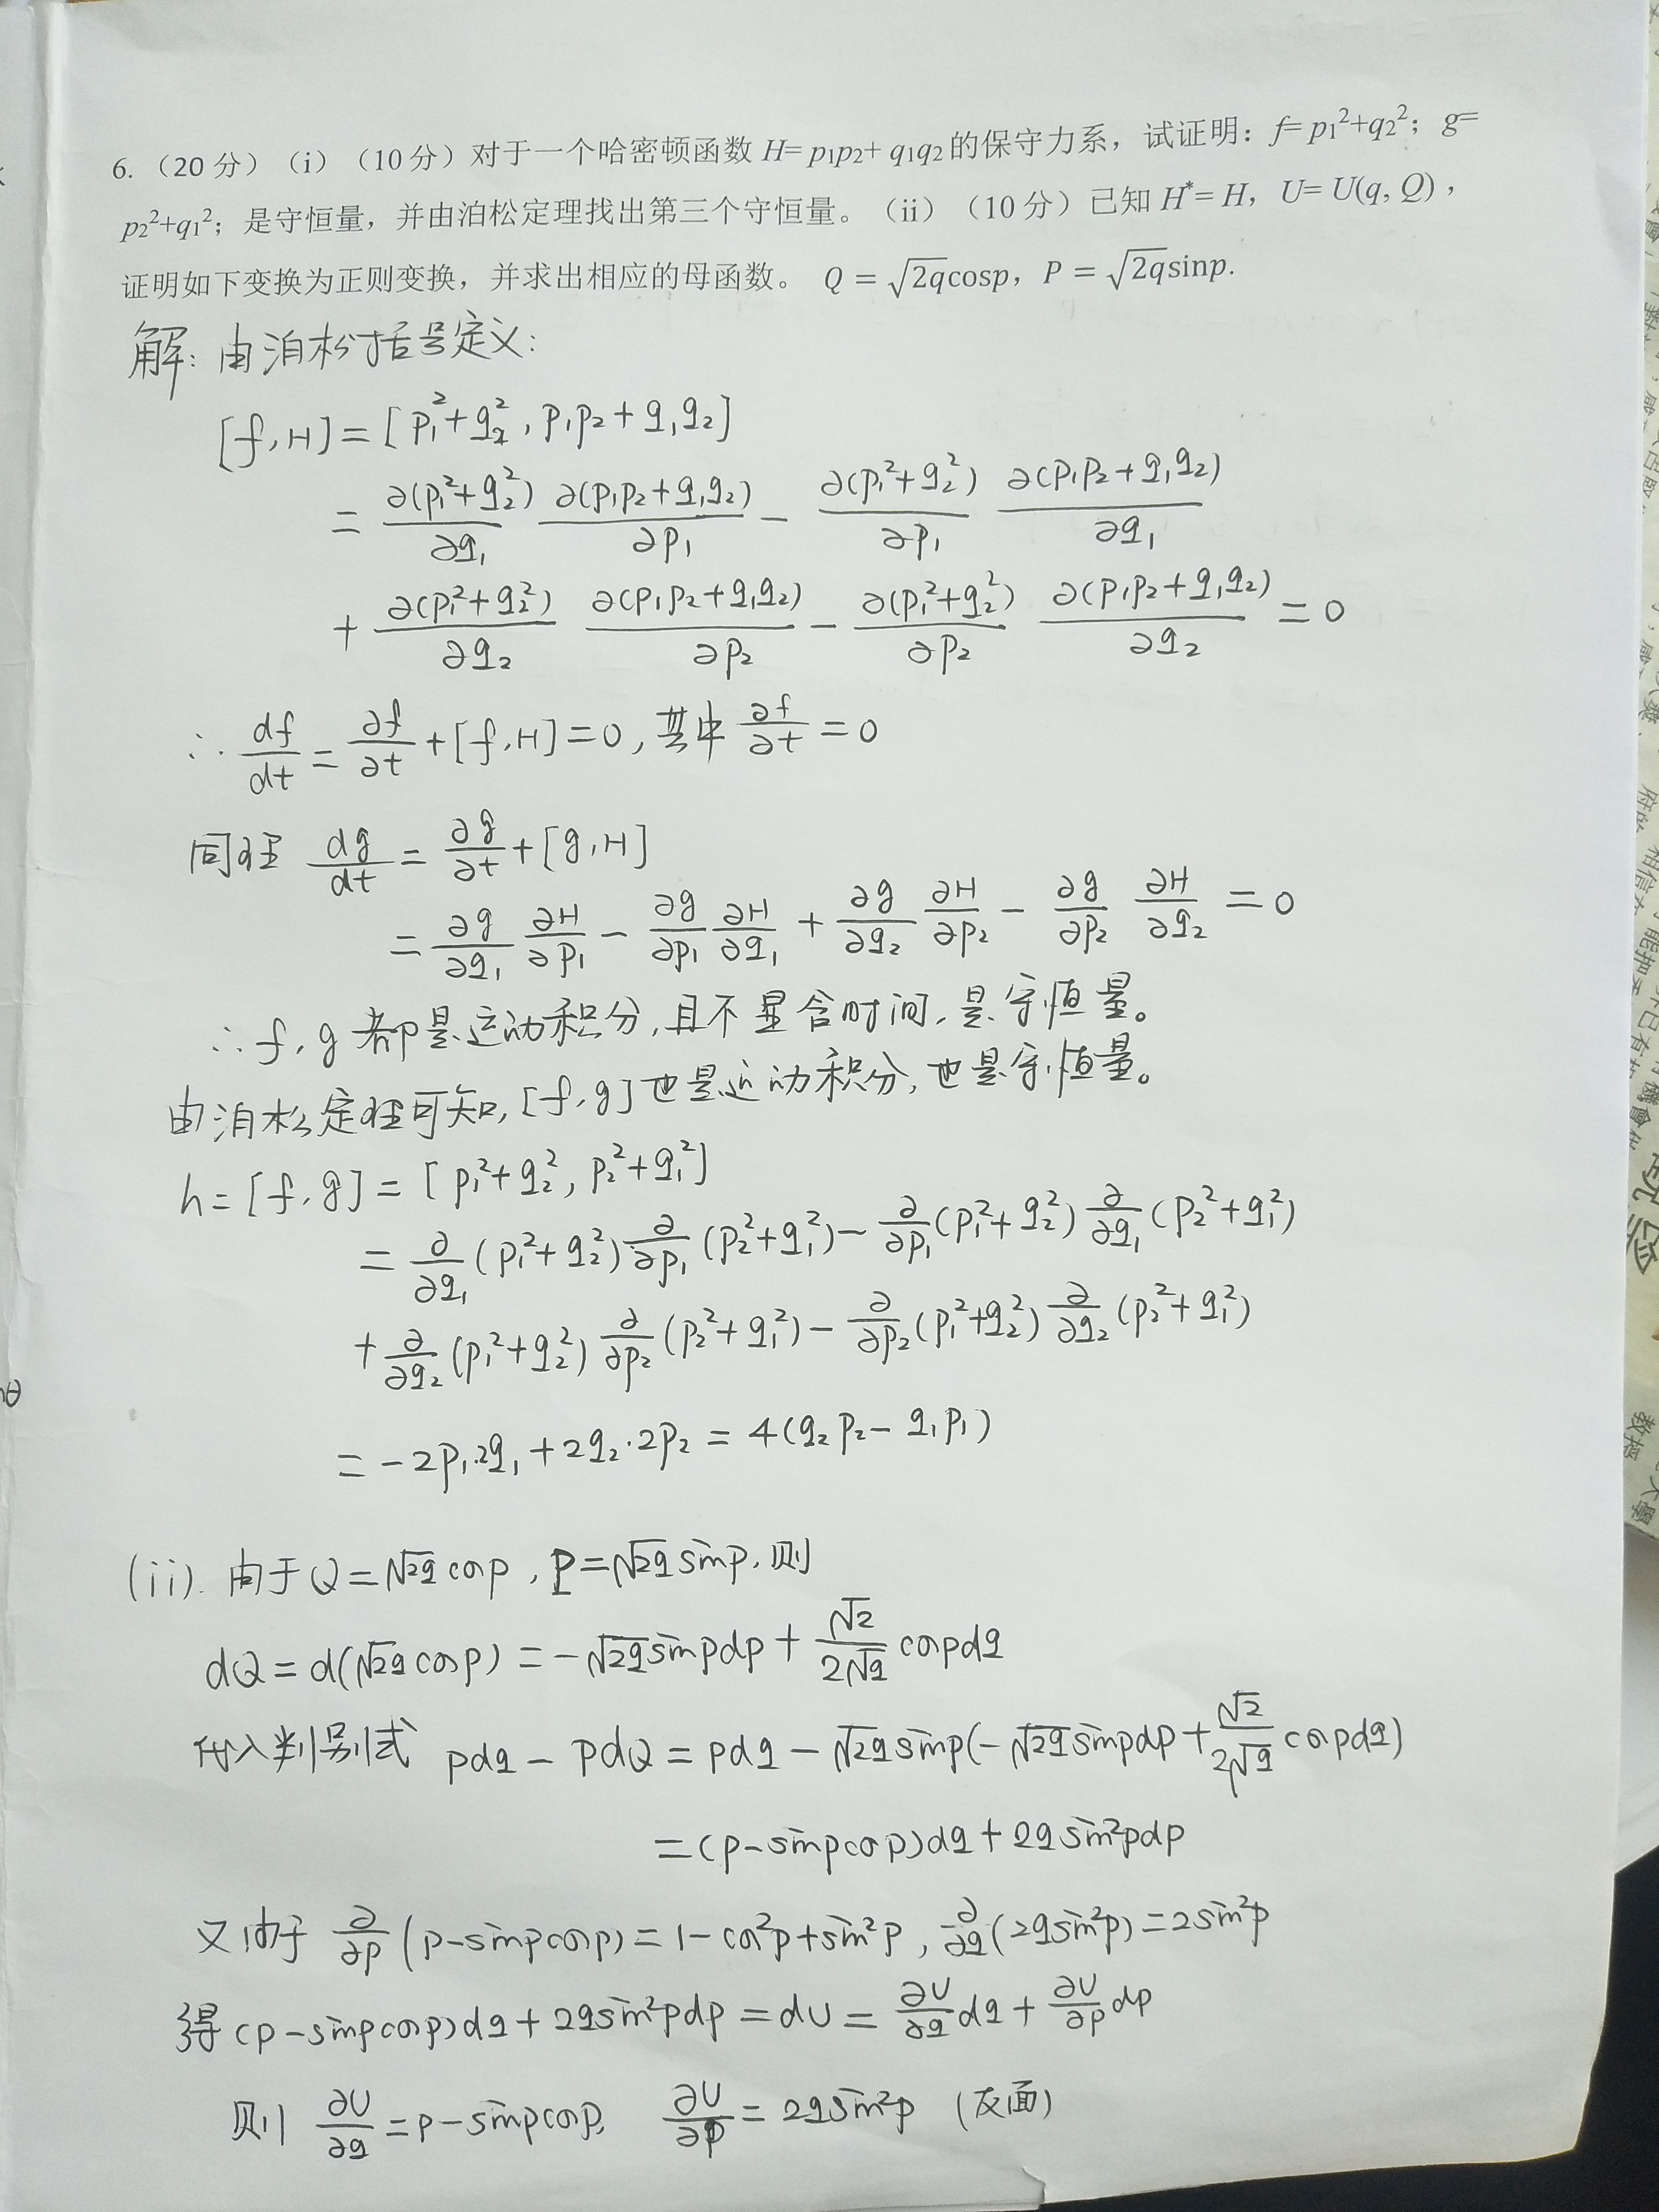 6.（20分）（i）（10分）对于一个哈密顿函数 H= p₁p₂+ q₁q₂ 的保守力系，试证明：f= p₁²+q₂²；g=
p₂²+q₁²；是守恒量，并由泊松定理找出第三个守恒量。（ii）（10分）已知 H*= H，U= U(q, Q)，
证明如下变换为正则变换，并求出相应的母函数。 Q = √2q cosp，P = √2q sinp.
解：由泊松括号定义：
[f,H] = [p₁²+q₂², p₁p₂+q₁q₂]
= ∂(p₁²+q₂²)/∂q₁ ∂(p₁p₂+q₁q₂)/∂p₁ − ∂(p₁²+q₂²)/∂p₁ ∂(p₁p₂+q₁q₂)/∂q₁
+ ∂(p₁²+q₂²)/∂q₂ ∂(p₁p₂+q₁q₂)/∂p₂ − ∂(p₁²+q₂²)/∂p₂ ∂(p₁p₂+q₁q₂)/∂q₂ = 0
∴ df/dt = ∂f/∂t + [f,H] = 0, 其中 ∂f/∂t = 0
同理 dg/dt = ∂g/∂t + [g,H]
= ∂g/∂q₁ ∂H/∂p₁ − ∂g/∂p₁ ∂H/∂q₁ + ∂g/∂q₂ ∂H/∂p₂ − ∂g/∂p₂ ∂H/∂q₂ = 0
∴ f, g 都是运动积分, 且不显含时间, 是守恒量。
由泊松定理可知, [f,g] 也是运动积分, 也是守恒量。
h = [f,g] = [p₁²+q₂², p₂²+q₁²]
= ∂/∂q₁ (p₁²+q₂²) ∂/∂p₁ (p₂²+q₁²) − ∂/∂p₁ (p₁²+q₂²) ∂/∂q₁ (p₂²+q₁²)
+ ∂/∂q₂ (p₁²+q₂²) ∂/∂p₂ (p₂²+q₁²) − ∂/∂p₂ (p₁²+q₂²) ∂/∂q₂ (p₂²+q₁²)
= −2p₁·2q₁ + 2q₂·2p₂ = 4(q₂p₂ − q₁p₁)
(ii). 由于 Q = √2q cosp, P = √2q sinp, 则
dQ = d(√2q cosp) = −√2q sinpdp + √2/2√q cospdq
代入判别式 pdq − PdQ = pdq − √2q sinp(−√2q sinpdp + √2/2√q cospdq)
= (p − sinpcosp)dq + 2q sin²pdp
又由于 ∂/∂p (p − sinpcosp) = 1 − cos²p + sin²p, ∂/∂q (2q sin²p) = 2sin²p
得 (p − sinpcosp)dq + 2q sin²pdp = dU = ∂U/∂q dq + ∂U/∂p dp
则 ∂U/∂q = p − sinpcosp, ∂U/∂p = 2q sin²p (反面)